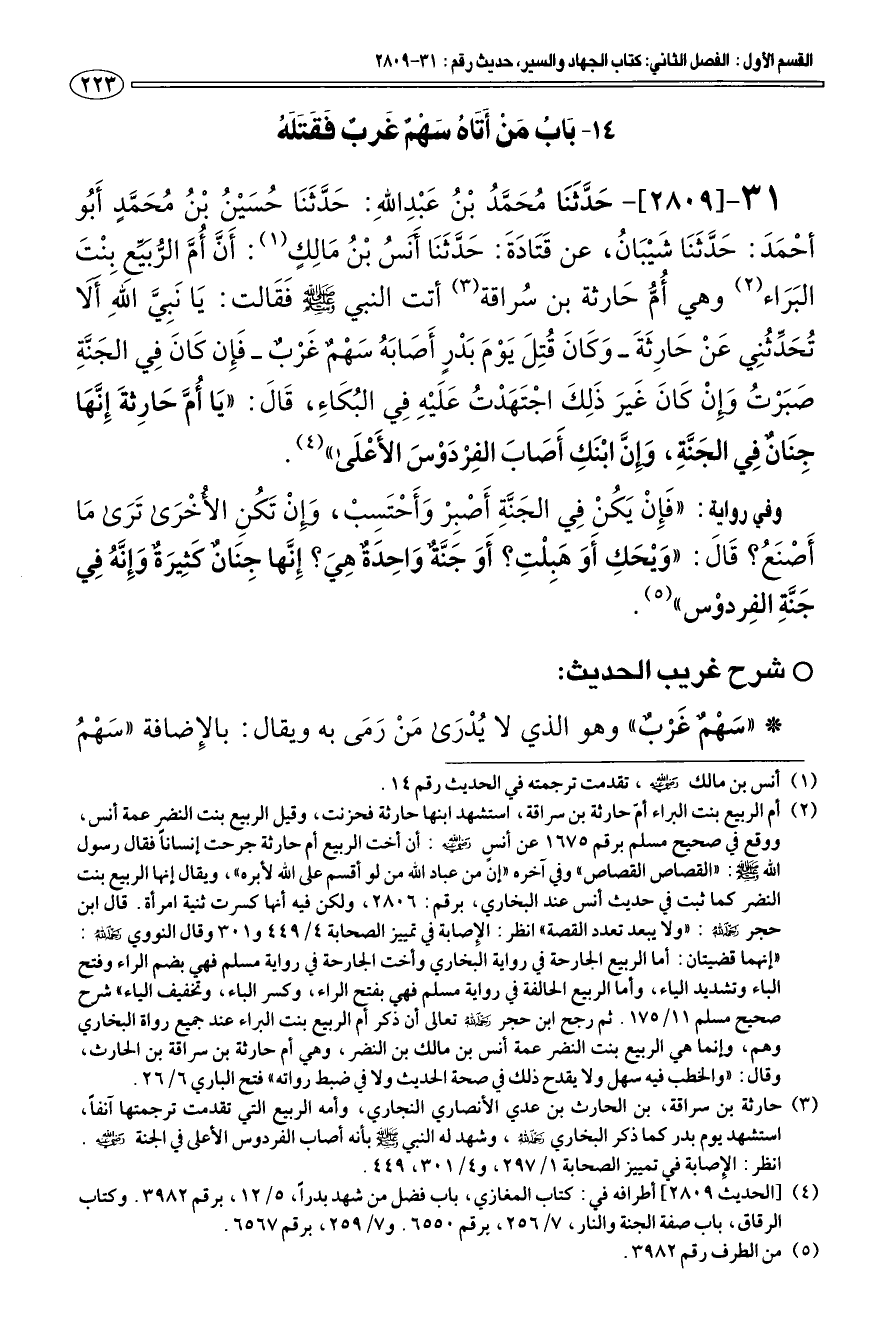 القسم الأول: الفصل الثاني: كتاب الجهاد والسير، حديث رقم: ٣١-٢٨٠٩
٢٢٣
١٤- بَابُ مَنْ أَتَاهُ سَهْمٌ غَرْبٌ فَقَتَلَهُ
٣١-[٢٨٠٩]- حَدَّثَنَا مُحَمَّدُ بْنُ عَبْدِاللهِ: حَدَّثَنَا حُسَيْنُ بْنُ مُحَمَّدٍ أَبُو
أحْمَدَ: حَدَّثَنَا شَيْبَانُ، عن قَتَادَةَ: حَدَّثَنَا أَنَسُ بْنُ مَالِكٍ(١): أَنَّ أُمَّ الرُّبَيِّعِ بِنْتَ
البَرَاء(٢) وهي أُمُّ حَارِثة بن سُراقة(٣) أتت النبي ﷺ فَقَالت: يَا نَبِيَّ اللهِ أَلَا
تُحَدِّثُنِي عَنْ حَارِثَةَ ـ وَكَانَ قُتِلَ يَوْمَ بَدْرٍ أَصَابَهُ سَهْمٌ غَرْبٌ ـ فَإِن كَانَ فِي الجَنَّةِ
صَبَرْتُ وَإِنْ كَانَ غَيرَ ذَلِكَ اجْتَهَدْتُ عَلَيْهِ فِي البُكَاءِ، قَالَ: «يَا أُمَّ حَارِثةَ إِنَّهَا
جِنَانٌ فِي الجَنَّةِ، وَإِنَّ ابْنَكِ أَصَابَ الفِرْدَوْسَ الأَعْلَىٰ»(٤).
وفي رواية: «فَإِنْ يَكُنْ فِي الجَنَّةِ أَصْبِرْ وَأَحْتَسِبْ، وَإِنْ تَكُنِ الأُخْرَىٰ تَرَىٰ مَا
أَصْنَعُ؟ قَالَ: «وَيْحَكِ أَوَ هَبِلْتِ؟ أَوَ جَنَّةٌ وَاحِدَةٌ هِيَ؟ إِنَّها جِنَانٌ كَثِيرَةٌ وَإِنَّهُ فِي
جَنَّةِ الفِردوْس»(٥).
○ شرح غريب الحديث:
* «سَهْمٌ غَرْبٌ» وهو الذي لا يُدْرَىٰ مَنْ رَمَى به ويقال: بالإضافة «سَهْمُ
(١) أنس بن مالك رضي الله عنه، تقدمت ترجمته في الحديث رقم ١٤.
(٢) أم الربيع بنت البراء أمّ حارثة بن سراقة، استشهد ابنها حارثة فحزنت، وقيل الربيع بنت النضر عمة أنس،
ووقع في صحيح مسلم برقم ١٦٧٥ عن أنس رضي الله عنه: أن أخت الربيع أم حارثة جرحت إنساناً فقال رسول
الله ﷺ: «القصاص القصاص» وفي آخره «إن من عباد الله من لو أقسم على الله لأبره»، ويقال إنها الربيع بنت
النضر كما ثبت في حديث أنس عند البخاري، برقم: ٢٨٠٦، ولكن فيه أنها كسرت ثنية امرأة. قال ابن
حجر رحمه الله: «ولا يبعد تعدد القصة» انظر: الإصابة في تمييز الصحابة ٤/ ٤٤٩ و٣٠١ وقال النووي رحمه الله:
«إنهما قضيتان: أما الربيع الجارحة في رواية البخاري وأخت الجارحة في رواية مسلم فهي بضم الراء وفتح
الباء وتشديد الياء، وأما الربيع الحالفة في رواية مسلم فهي بفتح الراء، وكسر الباء، وتخفيف الياء» شرح
صحيح مسلم ١١/ ١٧٥. ثم رجح ابن حجر رحمه الله تعالى أن ذكر أم الربيع بنت البراء عند جميع رواة البخاري
وهم، وإنما هي الربيع بنت النضر عمة أنس بن مالك بن النضر، وهي أم حارثة بن سراقة بن الحارث،
وقال: «والخطب فيه سهل ولا يقدح ذلك في صحة الحديث ولا في ضبط رواته» فتح الباري ٦/ ٢٦.
(٣) حارثة بن سراقة، بن الحارث بن عدي الأنصاري النجاري، وأمه الربيع التي تقدمت ترجمتها آنفاً،
استشهد يوم بدر كما ذكر البخاري رحمه الله، وشهد له النبي ﷺ بأنه أصاب الفردوس الأعلى في الجنة رضي الله عنه.
انظر: الإصابة في تمييز الصحابة ١/ ٢٩٧، و٤/ ٣٠١، ٤٤٩.
(٤) [الحديث ٢٨٠٩] أطرافه في: كتاب المغازي، باب فضل من شهد بدراً، ٥/ ١٢، برقم ٣٩٨٢. وكتاب
الرقاق، باب صفة الجنة والنار، ٧/ ٢٥٦، برقم ٦٥٥٠. و٧/ ٢٥٩، برقم ٦٥٦٧.
(٥) من الطرف رقم ٣٩٨٢.